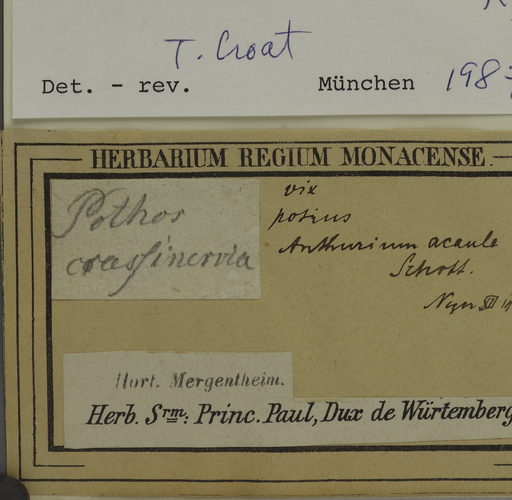 T. Croat
Det. - rev. München 198
HERBARIUM REGIUM MONACENSE.
Pothos
crassinervia
vix
potius
Anthurium acaule
Schott.
Hort. Mergentheim.
Herb. Srm: Princ. Paul, Dux de Würtemberg